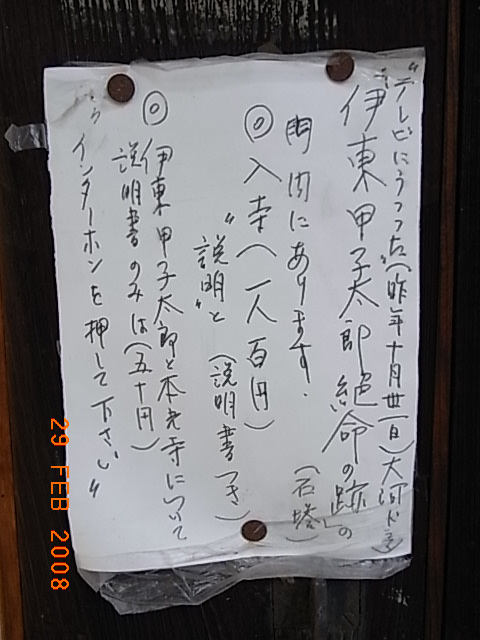 "テレビにうつった"(昨年十月廿一日)大河ドラマ
伊東甲子太郎絶命の跡の
門内にあります. (石塔)
◎入寺(一人百円)
"説明"と(説明書つき)
◎伊東甲子太郎と本光寺について
説明書のみは(五十円)
インターホンを押して下さい"
29 FEB 2008